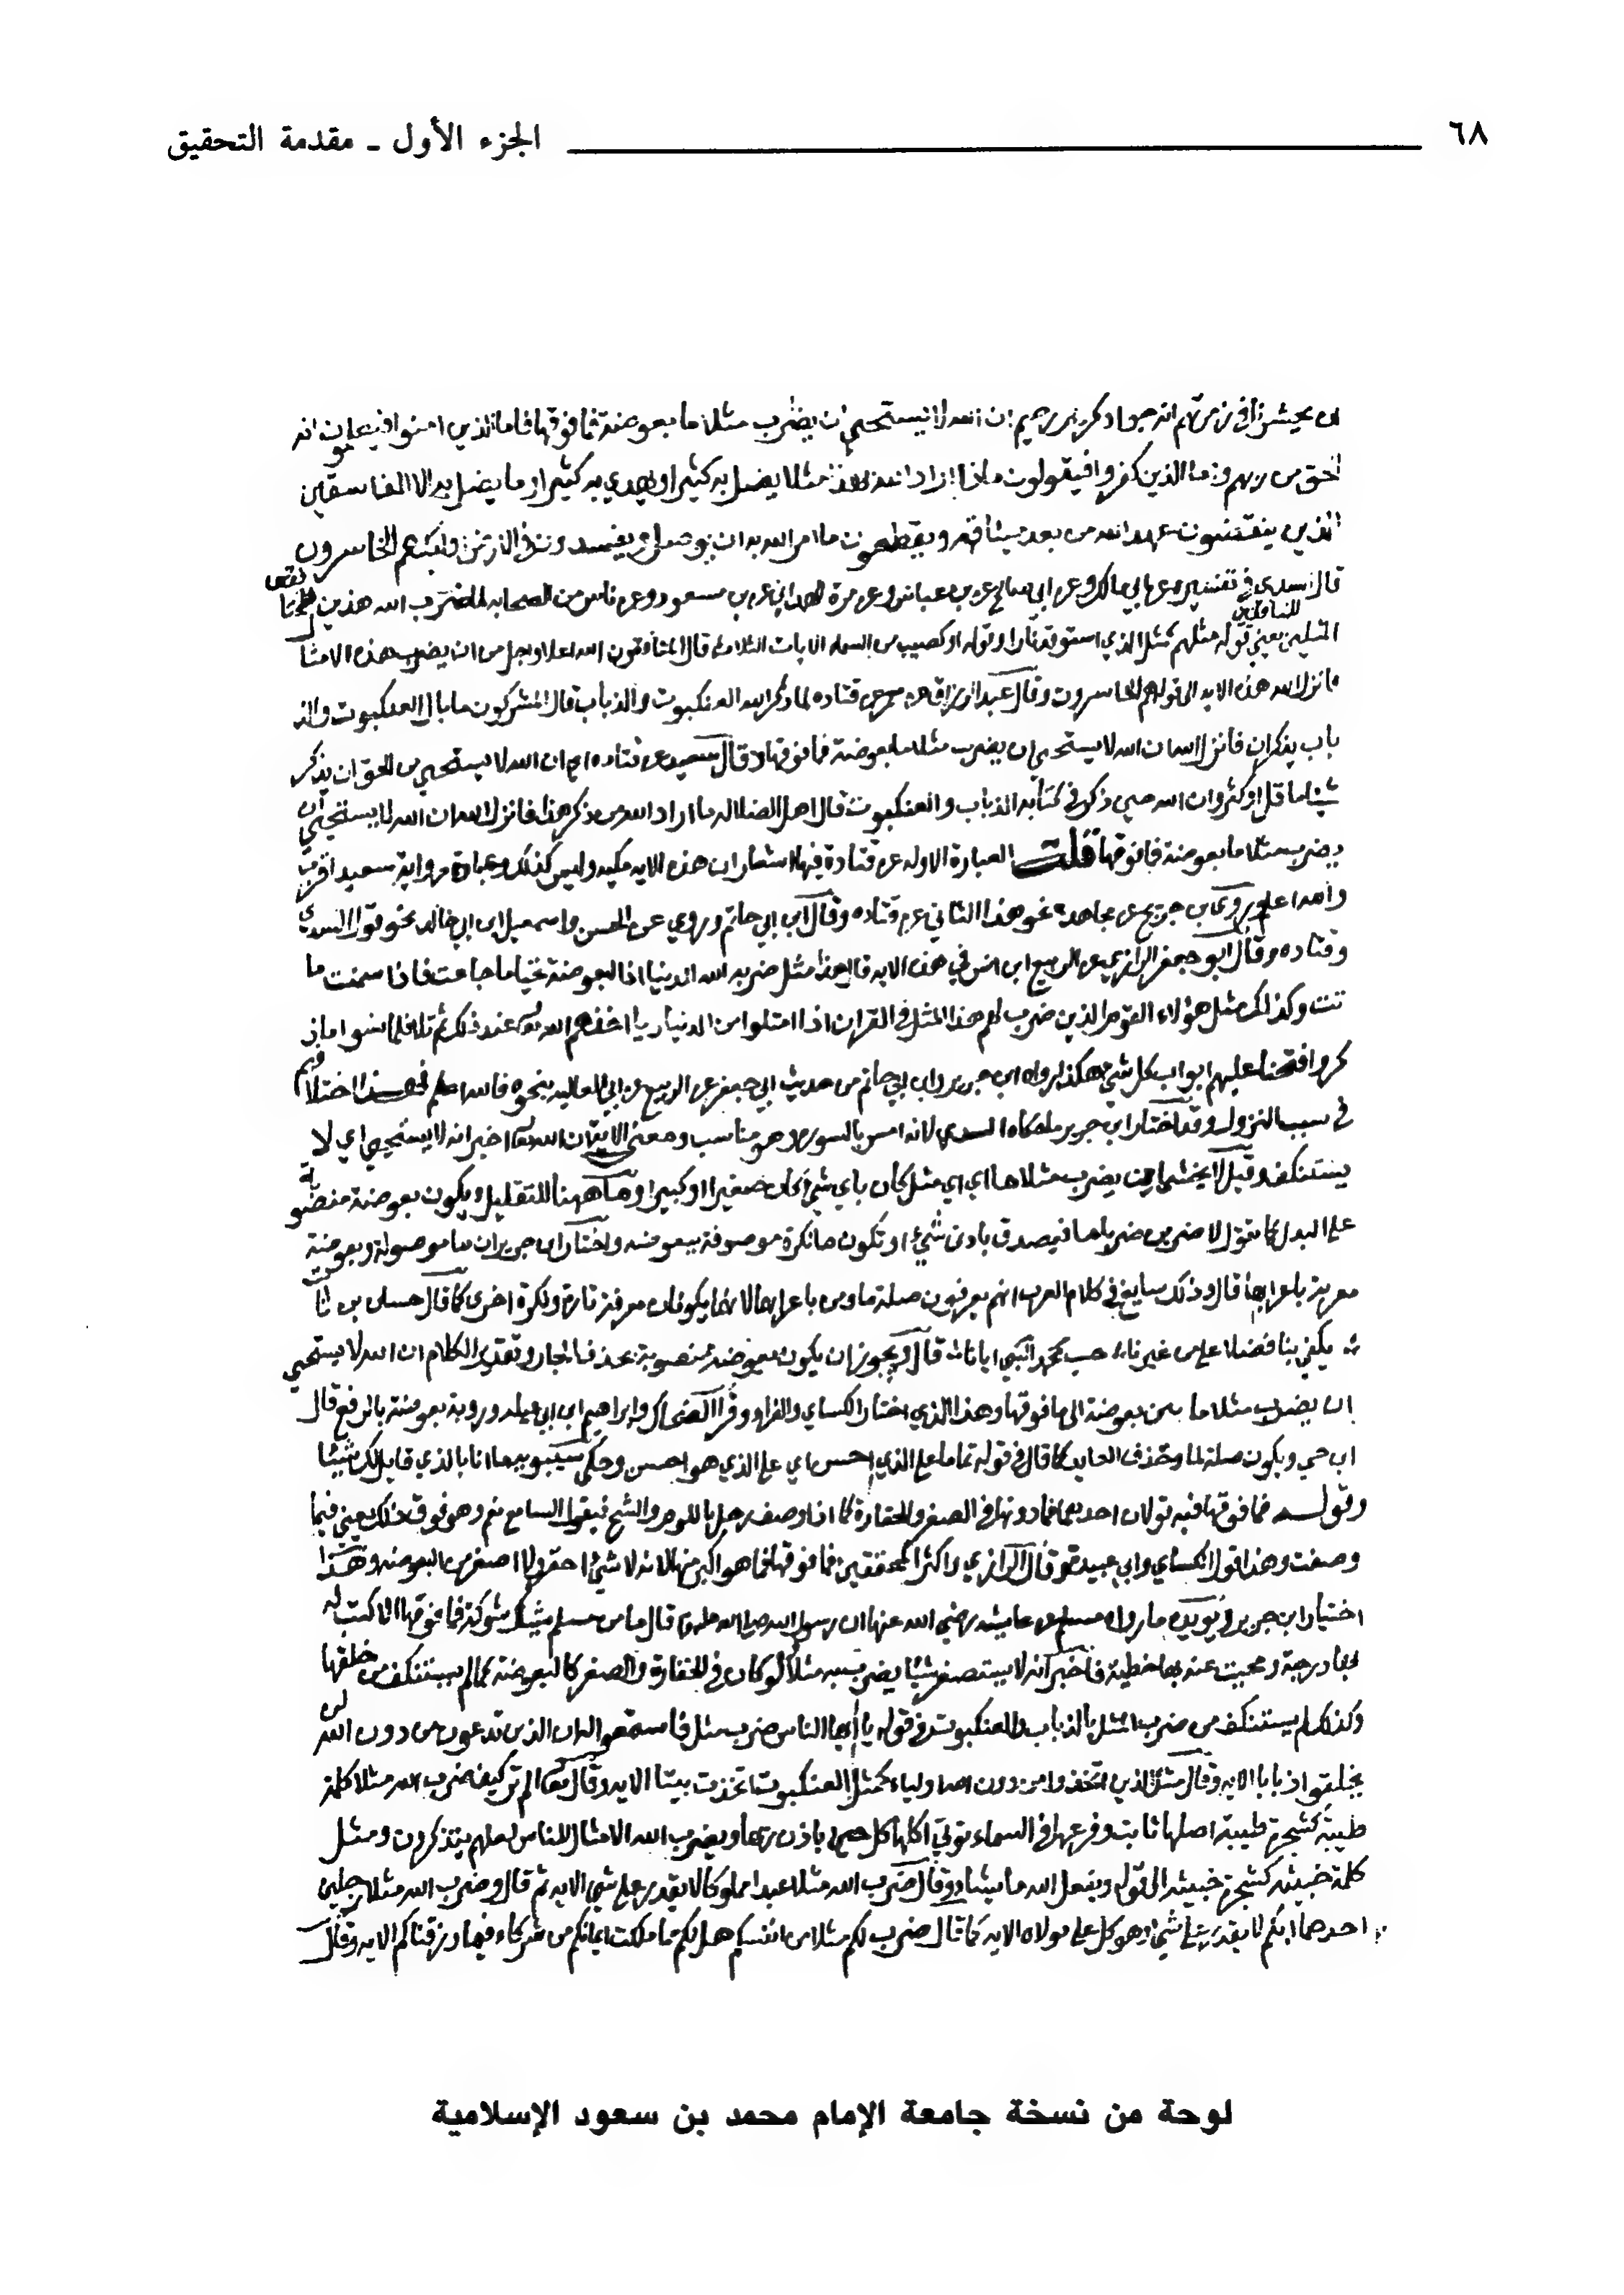 ٦٨ الجزء الأول ـ مقدمة التحقيق
ان يحشرنا في زمرتهم انه جواد كريم بر رحيم ان الله لا يستحيي ان يضرب مثلا ما بعوضة فما فوقها فاما الذين امنوا فيعلمون انه
الحق من ربهم واما الذين كفروا فيقولون ماذا اراد الله بهذا مثلا يضل به كثيرا ويهدي به كثيرا وما يضل به الا الفاسقين
الذين ينقضون عهد الله من بعد ميثاقه ويقطعون ما امر الله به ان يوصل ويفسدون في الارض اولئك هم الخاسرون
قال السدي في تفسيره عن ابي مالك وعن ابي صالح عن بن عباس وعن مرة الهمداني عن بن مسعود وعن ناس من الصحابه لما ضرب الله هذين
المثلين للمنافقين يعني قوله مثلهم كمثل الذي استوقد نارا وقوله او كصيب من السماء الايات الثلاث قال المنافقون الله اعلا واجل من ان يضرب هذه الامثا
فانزل الله هذه الايه الى قوله هم الخاسرون وقال عبد الرزاق عن معمر عن قتاده لما ذكر الله العنكبوت والذباب قال المشركون ما بال العنكبوت والذ
باب يذكران فانزل الله ان الله لا يستحيي ان يضرب مثلا ما بعوضة فما فوقها وقال سعيد عن قتاده اي ان الله لا يستحيي من الحق ان يذكر
شيئا ما قل او كثر وان الله حين ذكر في كتابه الذباب والعنكبوت قال اهل الضلاله ما اراد الله من ذكر هذا فانزل الله ان الله لا يستحيي ان
يضرب مثلا ما بعوضة فما فوقها قلت العبارة الاوله عن قتادة فيها اشعار ان هذه الايه مكيه وليس كذلك وعبارة رواية سعيد اقرب
والله اعلم وروى بن جريج عن مجاهد نحو هذا الثاني عن قتاده وقال ابن ابي حاتم وروي عن الحسن واسمعيل ابن ابي خالد نحو قول السدي
وقتاده وقال ابو جعفر الرازي عن الربيع ابن انس في هذه الايه قال هذا مثل ضربه الله للدنيا اذ البعوضة تحيا ما جاعت فاذا سمنت ما
تت وكذلك مثل هؤلاء القوم الذين ضرب لهم هذا المثل في القران اذا امتلوا من الدنيا ريا اخذهم الله عند ذلك ثم تلا فلما نسوا ما ذ
كروا فتحنا عليهم ابواب كل شي هكذا رواه ابن جرير وابن ابي حاتم من حديث ابي جعفر عن الربيع عن ابي العاليه بنحوه فالله اعلم فهذا اختلافهم
في سبب النزول وقد اختار ابن جرير ما حكاه السدي لانه امس بالسورة وهو مناسب ومعنى الاية ان الله اخبر انه لا يستحيي اي لا
يستنكف وقيل لا يخشى ان يضرب مثلا ما اي اي مثل كان باي شي كان صغيرا او كبيرا وما ههنا للتقليل ويكون بعوضة منصوبة
على البدل كما تقول لا ضربن ضربا ما فيصدق بادنى شيء او تكون ما نكرة موصوفة ببعوضه واختار ابن جرير ان ما موصولة وبعوضة
معربة باعرابها قال وذلك سايغ في كلام العرب انهم يعربون صلة ما ومن باعرابهما لانهما يكونان معرفة تارة ونكرة اخرى كما قال حسان بن ثا
يكفي بنا فضلا على من غيرنا حب محمد النبي ايانا قال ويجوز ان يكون بعوضة منصوبة بحذف الجار وتقدير الكلام ان الله لا يستحيي
ان يضرب مثلا ما بين بعوضة الى ما فوقها وهذا الذي اختاره الكساي والفراء وقرا الضحاك وابراهيم ابن ابي عبلة وروبة بعوضة بالرفع قال
ابن جني ويكون صلة لما وحذف العايد كما قال في قوله تماما على الذي احسن اي على الذي هو احسن وحكى سيبويه ما انا بالذي قايل لك شيئا
وقوله فما فوقها فيه قولان احدهما فما دونها في الصغر والحقارة كما اذا وصف رجل باللوم والشح فيقول السامع نعم وهو فوق ذلك يعني فيما
وصفت وهذا قول الكساي وابي عبيد قال الرازي واكثر المحققين فما فوقها فما هو اكبر منها لانه لا شيء احقر ولا اصغر من البعوضه وهذا
اختيار ابن جرير ويويده ما رواه مسلم عن عايشه رضي الله عنها ان رسول الله صلى الله عليه وسلم قال ما من مسلم يشاك شوكة فما فوقها الا كتب له
بها درجة ومحيت عنه بها خطية فاخبر انه لا يستصغر شيئا يضرب به مثلا ولو كان في الحقارة والصغر كالبعوضة كما لم يستنكف من خلقها
وكذلك لم يستنكف من ضرب المثل بالذباب والعنكبوت في قوله يا ايها الناس ضرب مثل فاستمعوا له ان الذين تدعون من دون الله لن
يخلقوا ذبابا الايه وقال مثل الذين اتخذوا من دون الله اولياء كمثل العنكبوت اتخذت بيتا الايه وقال الم تر كيف ضرب الله مثلا كلمة
طيبة كشجرة طيبة اصلها ثابت وفرعها في السماء توتي اكلها كل حين باذن ربها ويضرب الله الامثال للناس لعلهم يتذكرون ومثل
كلمة خبيثه كشجرة خبيثه الى قوله ويفعل الله ما يشاء وقال ضرب الله مثلا عبدا مملوكا لا يقدر على شي الايه ثم قال وضرب الله مثلا رجلين
احدهما ابكم لا يقدر على شي وهو كل على مولاه الايه كما قال ضرب لكم مثلا من انفسكم هل لكم مما ملكت ايمانكم من شركاء فيما رزقناكم الايه وقال
لوحة من نسخة جامعة الإمام محمد بن سعود الإسلامية